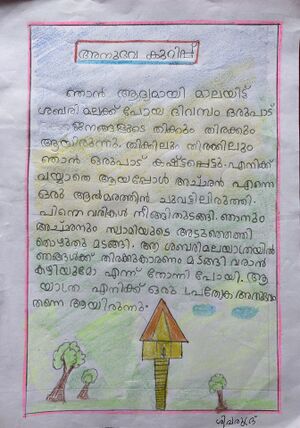 അനുഭവ കുറിപ്പ്
ഞാൻ ആദ്യമായി മാലയിട്ട്
ശബരി മലക്ക് പോയ ദിവസം ഒരുപാട്
ജനങ്ങളുടെ തിക്കും തിരക്കും
ആയിരുന്നു. തിക്കിലും തിരക്കിലും
ഞാൻ ഒരുപാട് കഷ്ട്ടപ്പെട്ടു. എനിക്ക്
വയ്യാതെ ആയപ്പോൾ അച്ഛൻ എന്നെ
ഒരു ആൽമരത്തിൻ ചുവട്ടിലിരുത്തി.
പിന്നെ വരികൾ നീങ്ങിതുടങ്ങി. ഞാനും
അച്ഛനും സ്വാമിയുടെ അടുത്തെത്തി
തൊഴുതു മടങ്ങി. ആ ശബരിമലയാത്രയിൽ
ഞങ്ങൾക്ക് തിരക്കുകാരണം മടങ്ങി വരാൻ
കഴിയുമോ എന്ന് തോന്നി പോയി. ആ
യാത്ര എനിക്ക് ഒരു പ്രത്യേക അനുഭവം
തന്നെ ആയിരുന്നു.